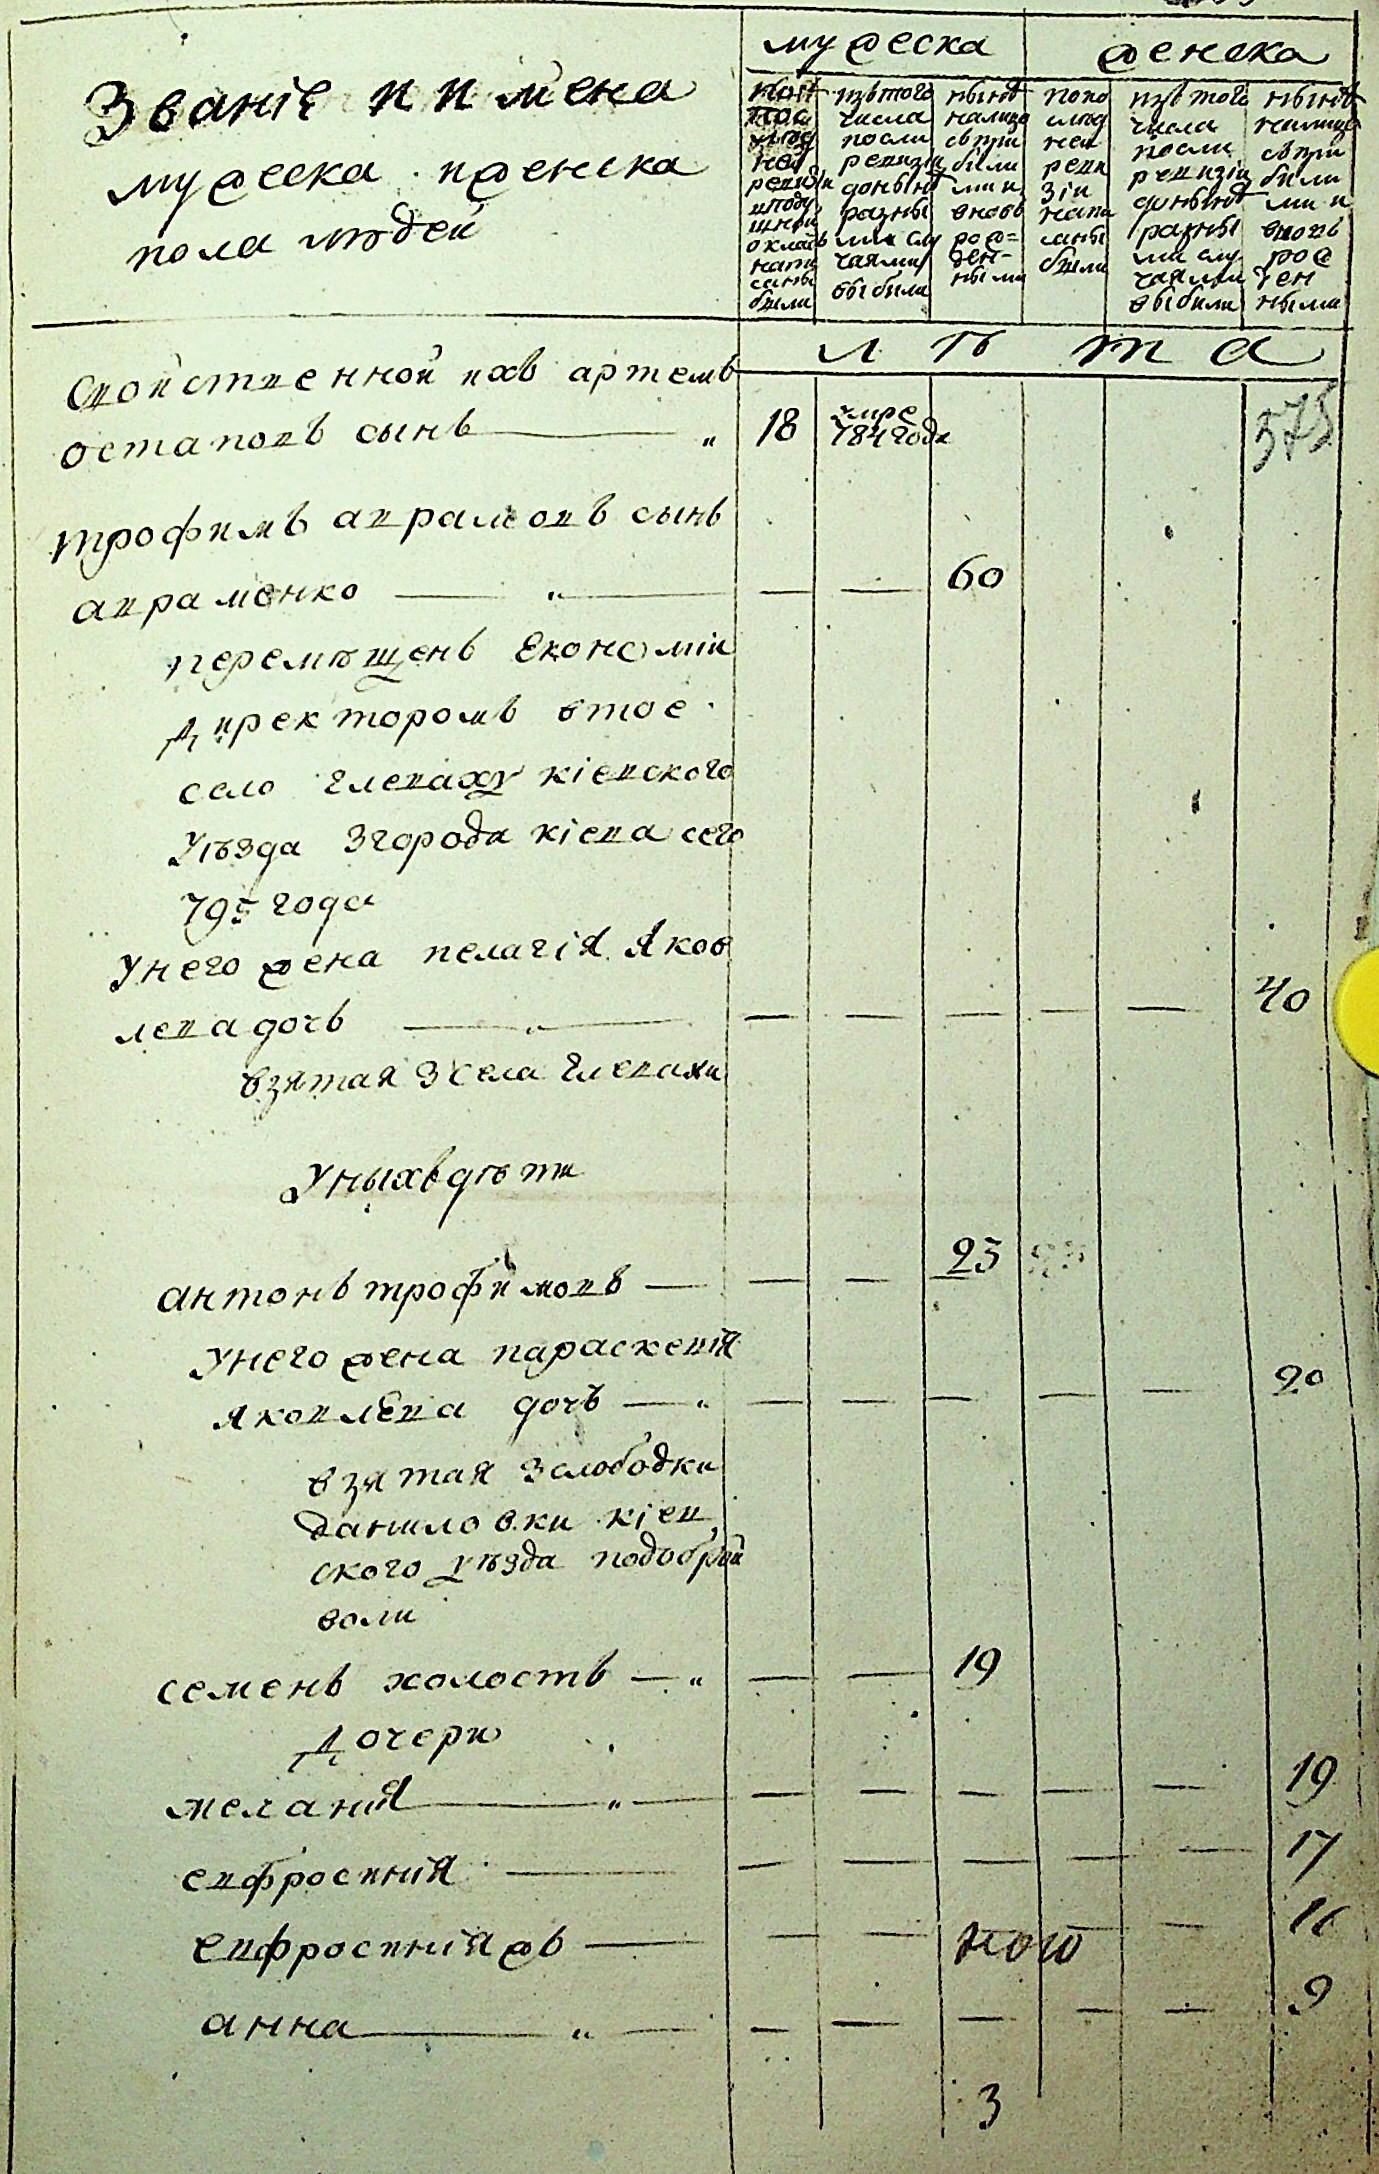 Званіе и имена
мужеска и женска
пола людей
мужеска
женска
по
пос
лѣд
ней
ревизіи
и поду
шной
окладъ
напи
саны
были
изъ того
числа
посли
ревизіи
до нынѣ
разны
ми слу
чаями
выбили
нынѣ
налицо
съ при
были
ми и
вновь
рож=
ден-
ными
попо
слѣд
ней
реви
зіи
напи
саны
были
изъ того
числа
посли
ревизіи
до нынѣ
разны
ми слу
чаями
выбили
нынѣ
налицо
съ при
били
ми и
вновь
рож
ден
ными
лѣта
Свойственной ихъ артемъ
остаповъ сынъ 18 умре 784 года 575
трофимъ аврамовъ сынъ
авраменко 60
перемѣщенъ Економіи
директоромъ втое
село глеваху кіевского
уѣзда згорода кіева сего
795 года
унего жена пелагія яков
лева дочь 40
взятая зсела глевахи
унихъ дѣти
антонъ трофимовъ 23
унего жена параскевія
яковлева дочь 20
взятая зслободки
даниловки кіев
ского уѣзда подоброй
воли
семенъ холостъ 19
дочери
меланія 19
евфросинія 17
евфросиніяжъ 16
анна 9
итого
3